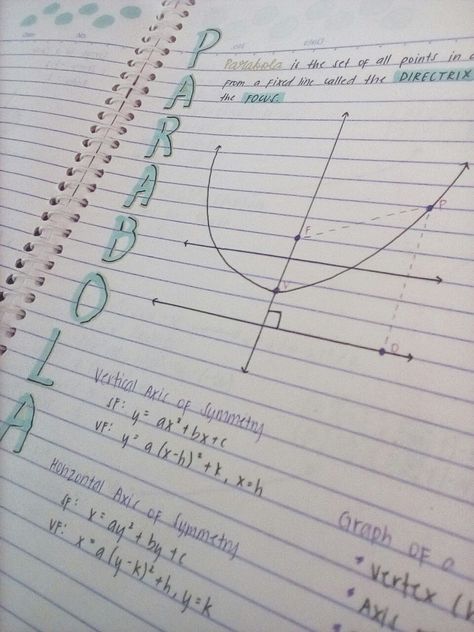 PARABOLA
Parabola is the set of all points in
from a fixed line called the DIRECTRIX
the FOCUS.
F
P
V
Q
Vertical Axis of Symmetry
SF: y = ax² + bx + c
VF: y = a (x-h)² + k, x=h
Horizontal Axis of Symmetry
SF: x = ay² + by + c
VF: x = a (y-k)² + h, y=k
Graph of a
• Vertex (
• Axis